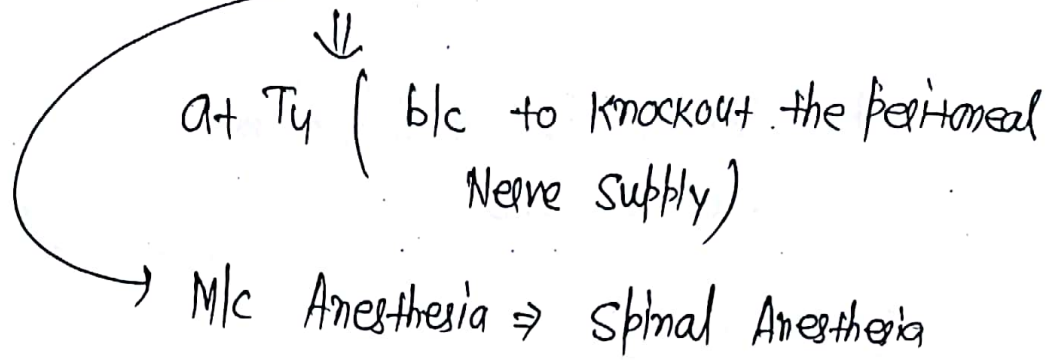 ⇓
at T4 ( b/c to Knockout the Peritoneal
Nerve Supply)
→ M/c Anesthesia ⇒ Spinal Anesthesia